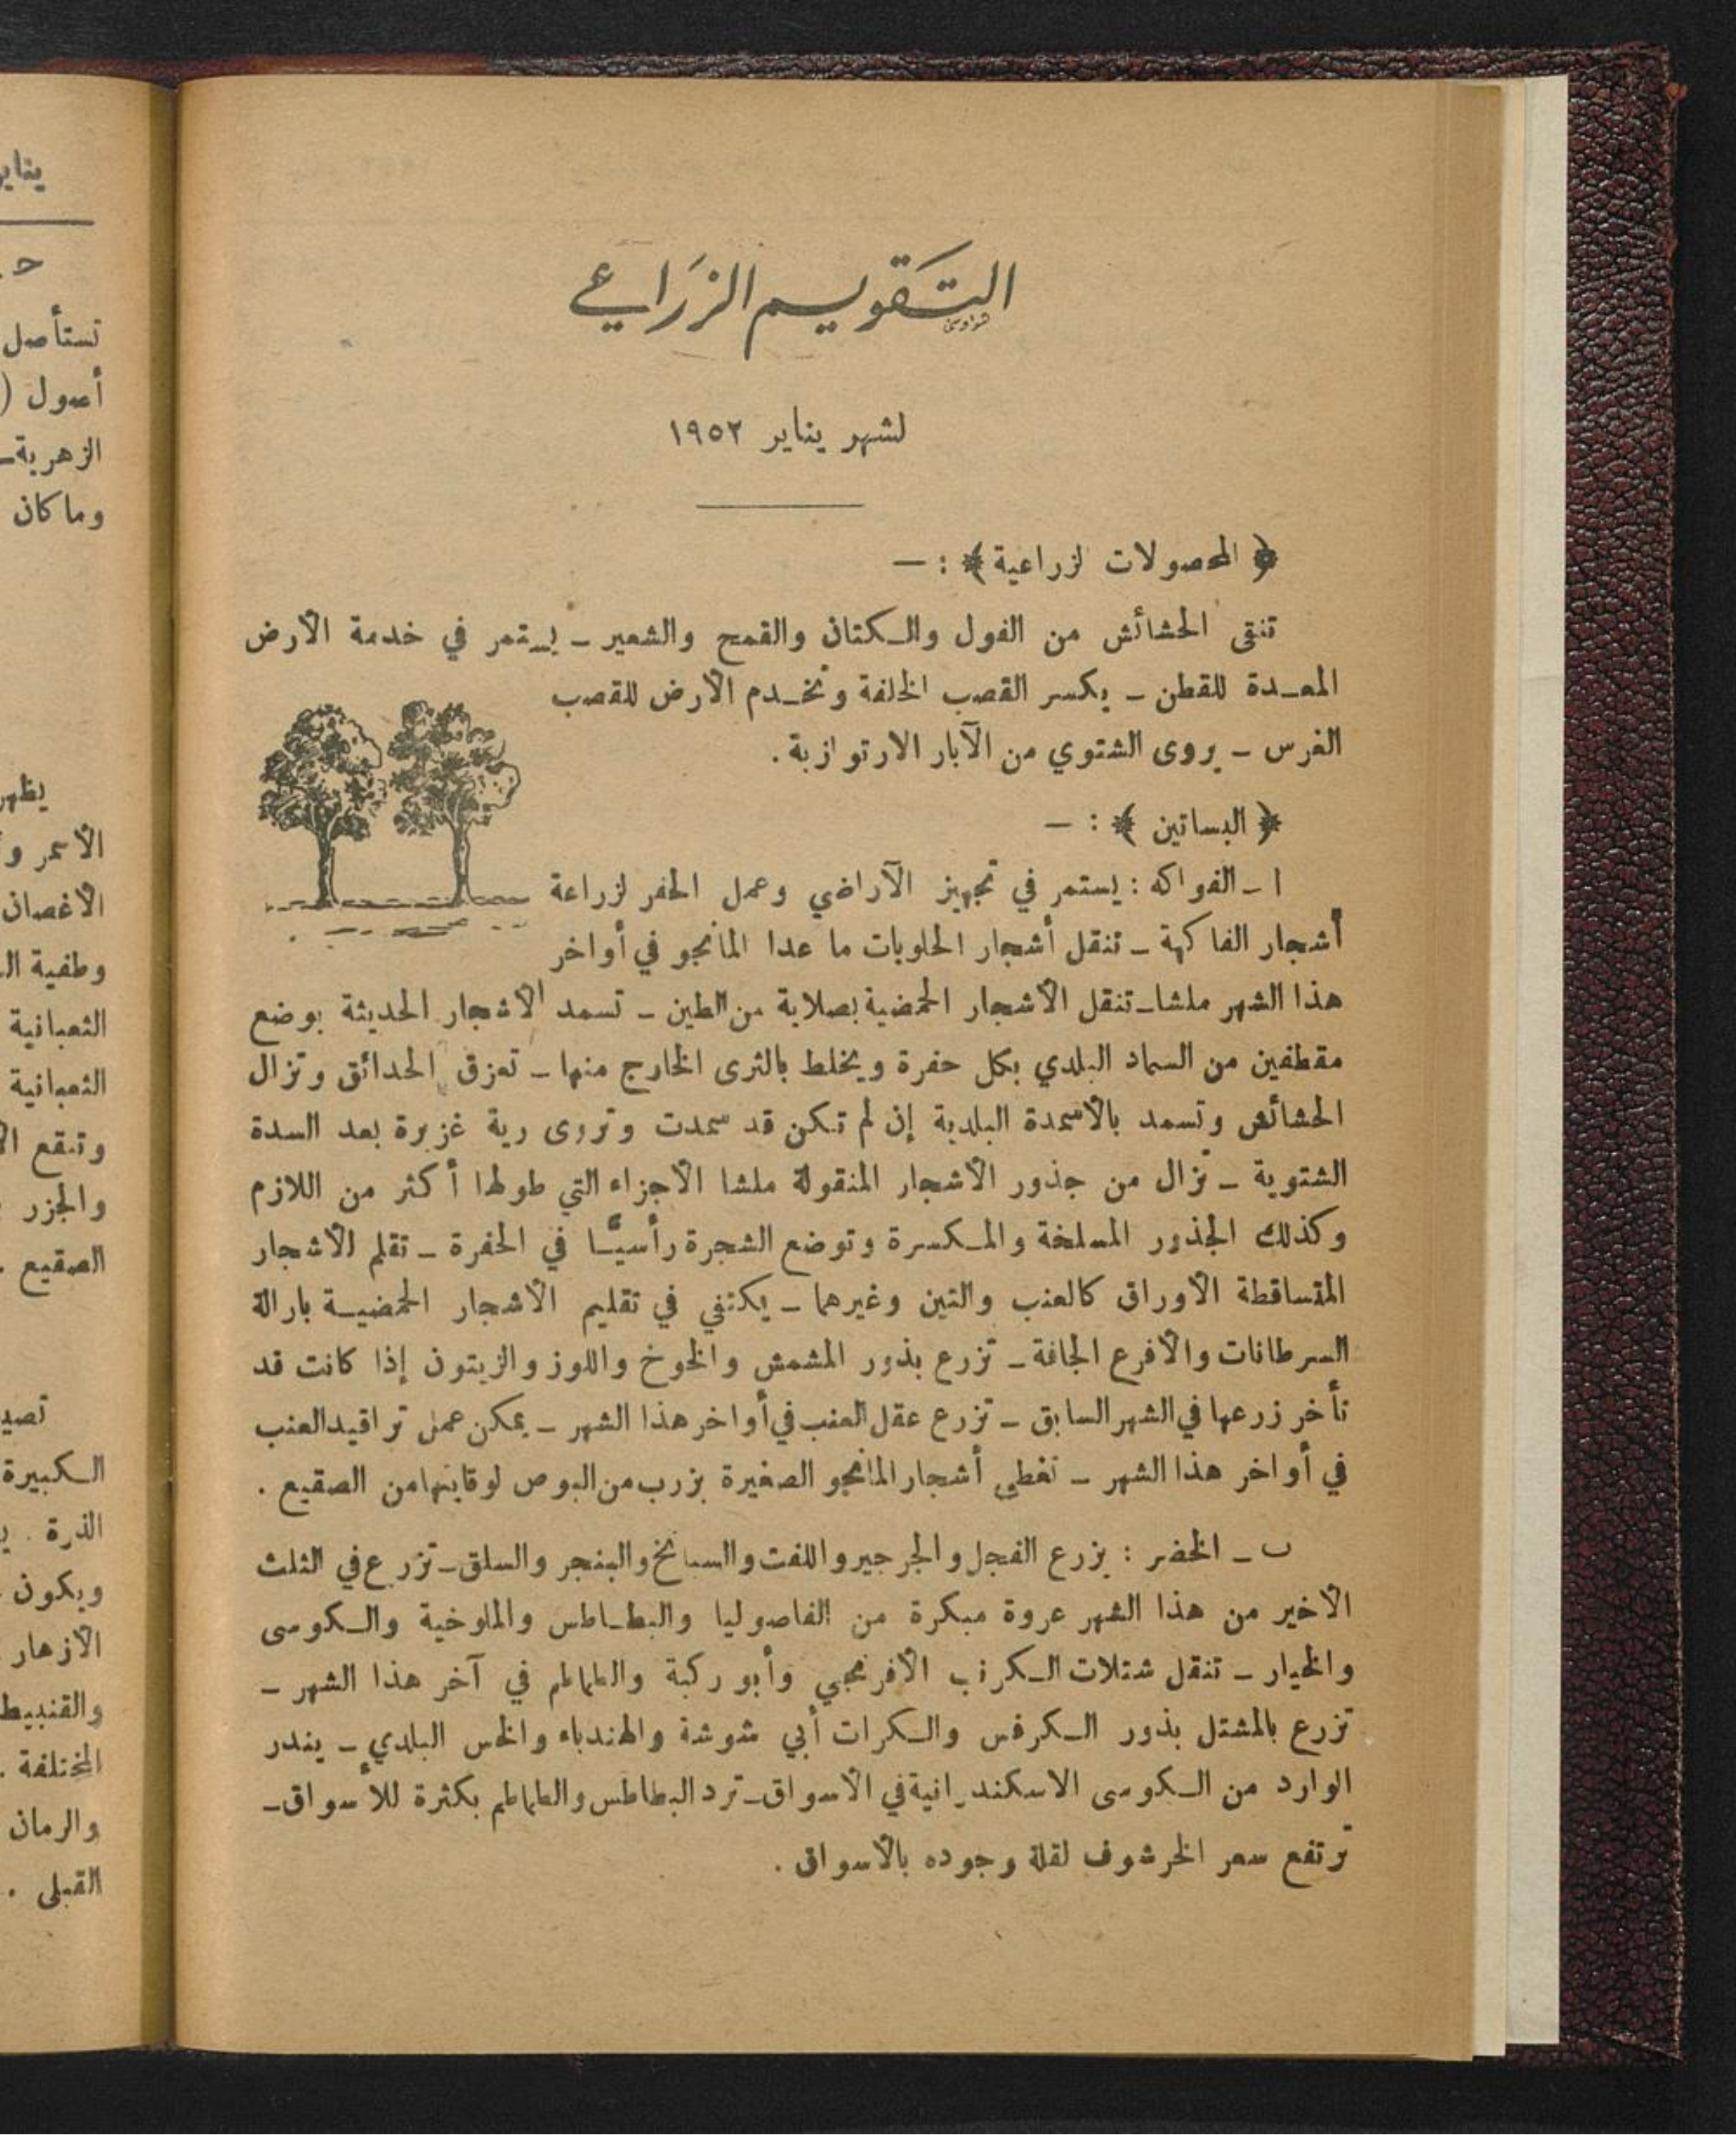 التقويم الزراعي
لشهر يناير ١٩٥٢
﴿ المحصولات لزراعية ﴾ : —
تنقى الحشائش من الفول والكتان والقمح والشعير ـ يستمر في خدمة الأرض
المعدة للقطن ـ يكسر القصب الخلفة وتخدم الأرض للقصب
الغرس ـ يروى الشتوي من الآبار الارتوازية .
﴿ البساتين ﴾ : —
ا ـ الفواكه : يستمر في تجهيز الآراضي وعمل الحفر لزراعة
أشجار الفاكهة ـ تنقل أشجار الحلويات ما عدا المانجو في أواخر
هذا الشهر ملشا ـ تنقل الأشجار الحمضية بصلابة من الطين ـ تسمد الأشجار الحديثة بوضع
مقطفين من السماد البلدي بكل حفرة ويخلط بالثرى الخارج منها ـ تعزق الحدائق وتزال
الحشائش وتسمد بالأسمدة البلدية إن لم تكن قد سمدت وتروى رية غزيرة بعد السدة
الشتوية ـ تزال من جذور الأشجار المنقولة ملشا الأجزاء التي طولها أكثر من اللازم
وكذلك الجذور المسلخة والمكسرة وتوضع الشجرة رأسيًا في الحفرة ـ تقلم الأشجار
المتساقطة الأوراق كالعنب والتين وغيرهما ـ يكتفي في تقليم الأشجار الحمضية بازالة
السرطانات والأفرع الجافة ـ تزرع بذور المشمش والخوخ واللوز والزيتون إذا كانت قد
تأخر زرعها في الشهر السابق ـ تزرع عقل العنب في أواخر هذا الشهر ـ يمكن عمل تراقيد العنب
في أواخر هذا الشهر ـ تغطى أشجار المانجو الصغيرة بزرب من البوص لوقايتها من الصقيع .
ب ـ الخضر : يزرع الفجل والجرجير واللفت والسبانخ والبنجر والسلق ـ تزرع في الثلث
الأخير من هذا الشهر عروة مبكرة من الفاصوليا والبطاطس والملوخية والكوسى
والخيار ـ تنقل شتلات الكرنب الأفرنجي وأبو ركبة والطماطم في آخر هذا الشهر ـ
تزرع بالمشتل بذور الكرفس والكرات أبي شوشة والهندباء والخس البلدي ـ يندر
الوارد من الكوسى الاسكندرانية في الأسواق ـ ترد البطاطس والطماطم بكثرة للأسواق ـ
ترتفع سعر الخرشوف لقلة وجوده بالأسواق .
يناير
تستأصل
أصول (
الزهرية ـ
وما كان
يظهر
الأسمر
الأغصان
وطفية
الثعبانية
الثعبانية
وتنقع
والجزر
الصقيع .
الكبيرة
الذرة .
ويكون
الأزهار
والقنبيط
المختلفة .
والرمان
القبلى .